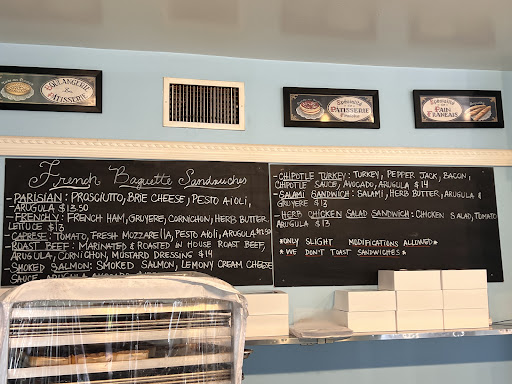 BOULANGERIE
PATISSERIE
Spécialité
PATISSERIE
Spécialité
PAIN
FRANÇAIS
French Baguette Sandwiches
- PARISIAN: PROSCIUTTO, BRIE CHEESE, PESTO AIOLI,
ARUGULA $13.50
- FRENCHY: FRENCH HAM, GRUYERE, CORNICHON, HERB BUTTER
LETTUCE $13
- CAPRESE: TOMATO, FRESH MOZZARELLA, PESTO AIOLI, ARUGULA
- ROAST BEEF: MARINATED & ROASTED IN HOUSE ROAST BEEF,
ARUGULA, CORNICHON, MUSTARD DRESSING $14
- SMOKED SALMON: SMOKED SALMON, LEMONY CREAM CHEESE
SAUCE
- CHIPOTLE TURKEY: TURKEY, PEPPER JACK, BACON,
CHIPOTLE SAUCE, AVOCADO, ARUGULA $14
- SALAMI SANDWICH: SALAMI, HERB BUTTER, ARUGULA &
GRUYERE $13
- HERB CHICKEN SALAD SANDWICH: CHICKEN SALAD, TOMATO
ARUGULA $13
*ONLY SLIGHT MODIFICATIONS ALLOWED*
* WE DON'T TOAST SANDWICHES *